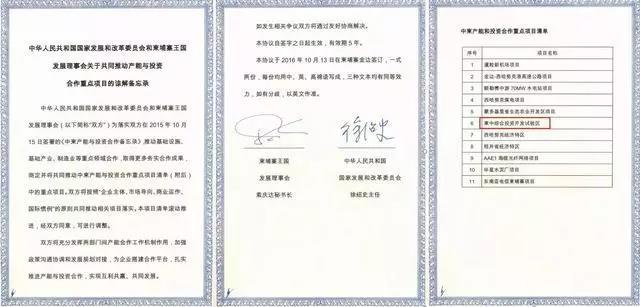 中华人民共和国国家发展和改革委员会和柬埔寨王国
发展理事会关于共同推动产能与投资
合作重点项目的谅解备忘录
中华人民共和国国家发展和改革委员会和柬埔寨王国
发展理事会（以下简称“双方”）为落实双方在 2015 年 10
月 15日签署的《中柬产能与投资合作备忘录》推动基础设施、
基础产业、制造业等重点领域合作，取得更多务实合作成果，
商定并将共同推动中柬产能与投资合作重点项目清单（附后）
中的重点项目。双方将按照“企业主体、市场导向、商业运作、
国际惯例”的原则共同推动相关项目落实。本项目清单滚动推
进，经双方同意，可进行调整。
双方将充分发挥两部门间产能合作工作机制作用，加强
政策沟通协调和发展规划对接，为企业搭建合作平台，扎实
推进产能与投资合作，实现互利共赢、共同发展。
如发生相关争议双方将通过友好协商解决。
本协议自签字之日起生效，有效期 5 年。
本协议于 2016 年 10 月 13 日在柬埔寨金边签订，一式
两份，每份均用中、英、高棉语写成，三种文本均有同等效
力，如有分歧，以英文作准。
柬埔寨王国
发展理事会
索庆达秘书长
中华人民共和国
国家发展和改革委员会
徐绍史主任
中柬产能和投资合作重点项目清单
序号 项目名称
1 暹粒新机场项目
2 金边-西哈努克港高速公路项目
3 额勒赛中游 70MW 水电站项目
4 西哈努克煤电项目
5 生态农业开发区项目
6 柬中综合投资开发试验区
7 西哈努克经济特区
8 桔井省经济特区
9 AAE1 海缆光纤网络项目
10 华星水泥厂项目
11 东南亚电信柬埔寨项目